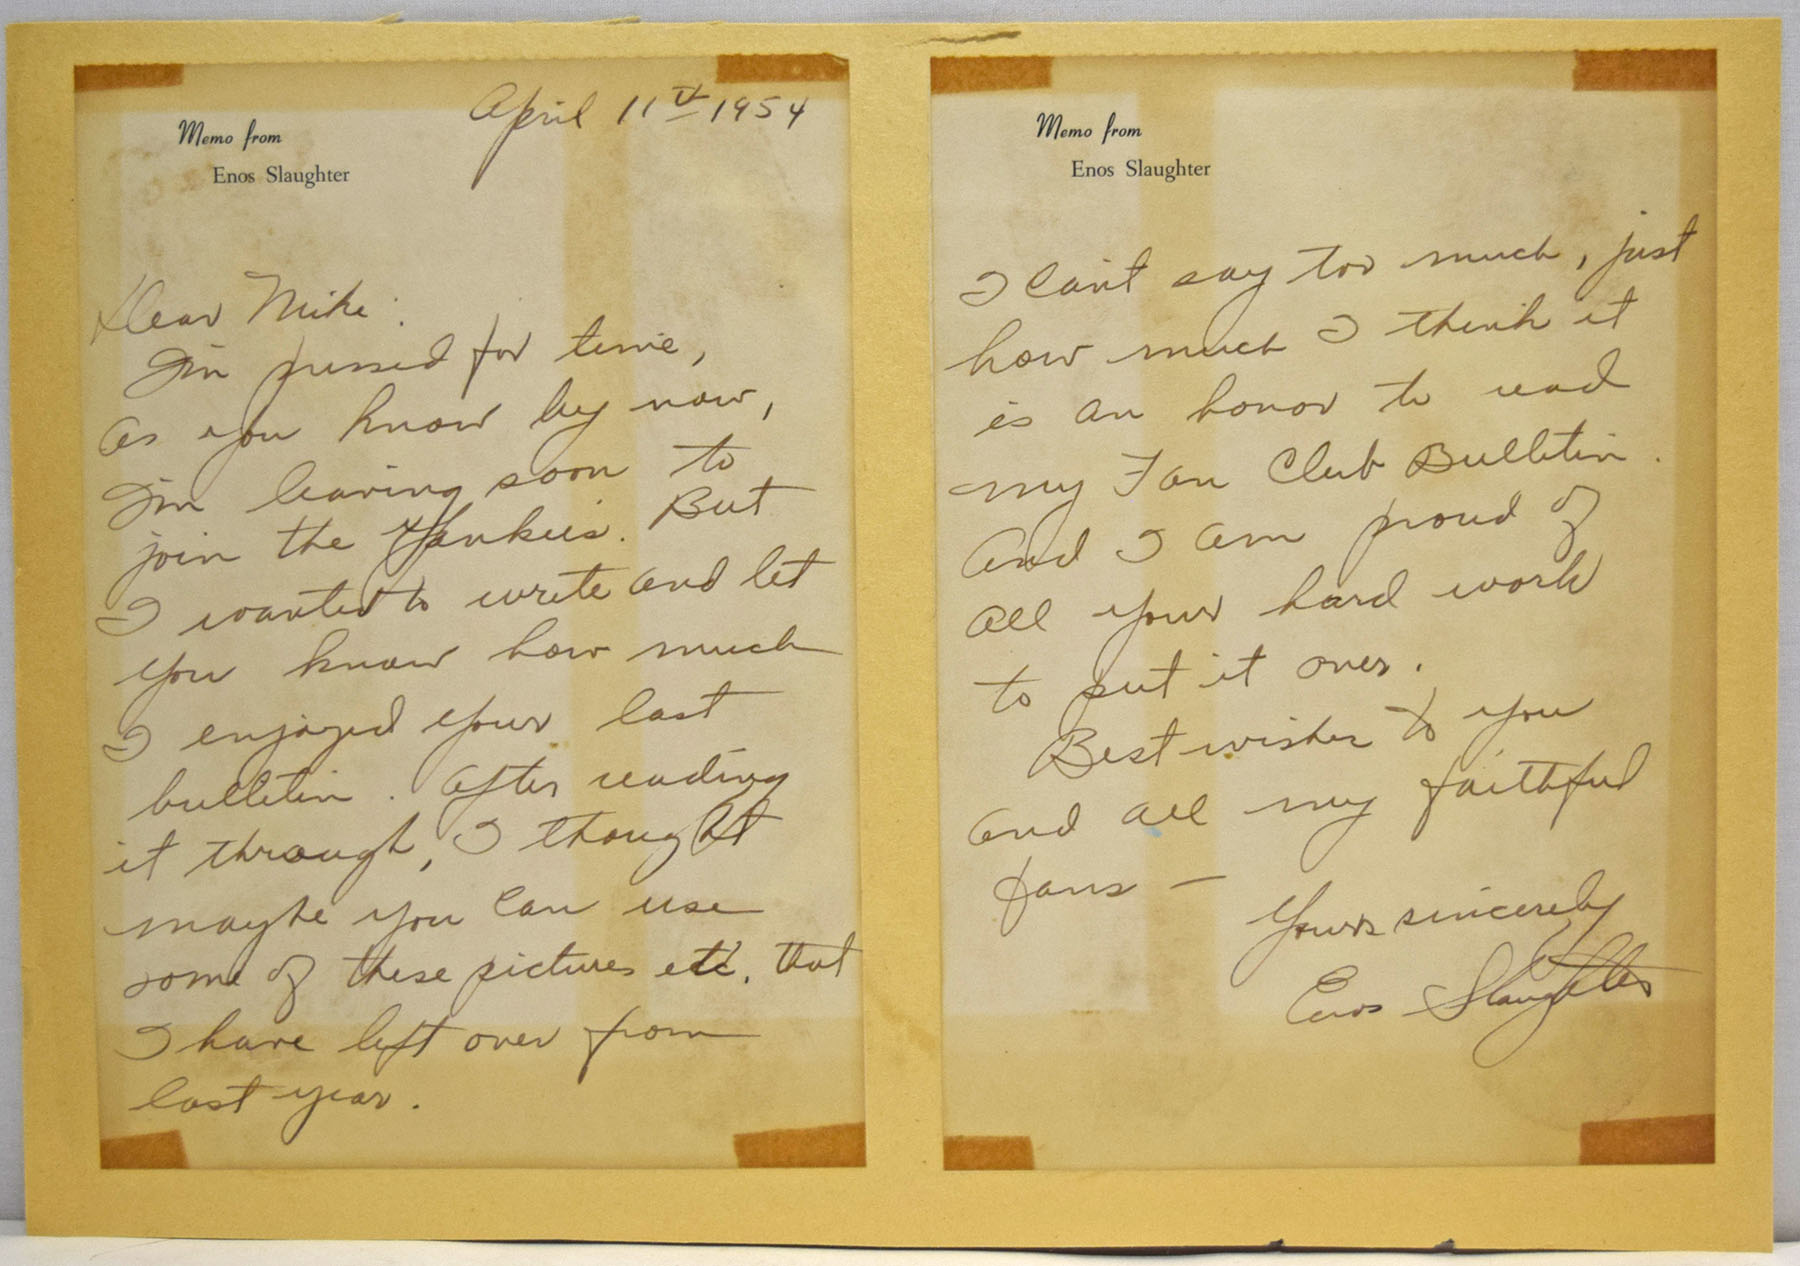 Memo from
Enos Slaughter
April 11th 1954
Dear Mike:
I'm pressed for time,
as you know by now,
I'm leaving soon to
join the Yankees. But
I wanted to write and let
you know how much
I enjoyed your last
bulletin. After reading
it through, I thought
maybe you can use
some of these pictures etc. that
I have left over from
last year.
Memo from
Enos Slaughter
I can't say too much, just
how much I think it
is an honor to read
my Fan Club Bulletin.
And I am proud of
all your hard work
to put it over.
Best wishes to you
and all my faithful
fans —
Yours sincerely
Enos Slaughter